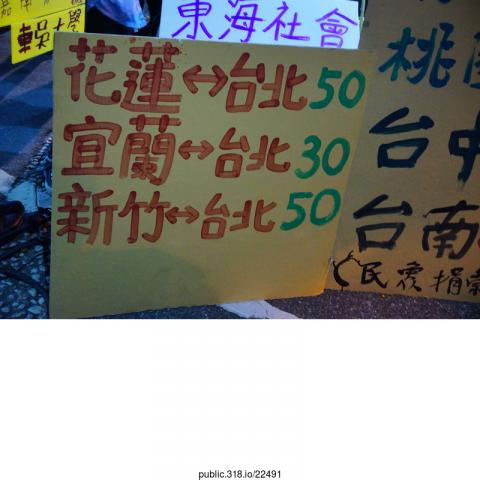 東海社會
花蓮↔台北50
宜蘭↔台北30
新竹↔台北50
桃
台中
台南
民眾捐
public.318.io/22491